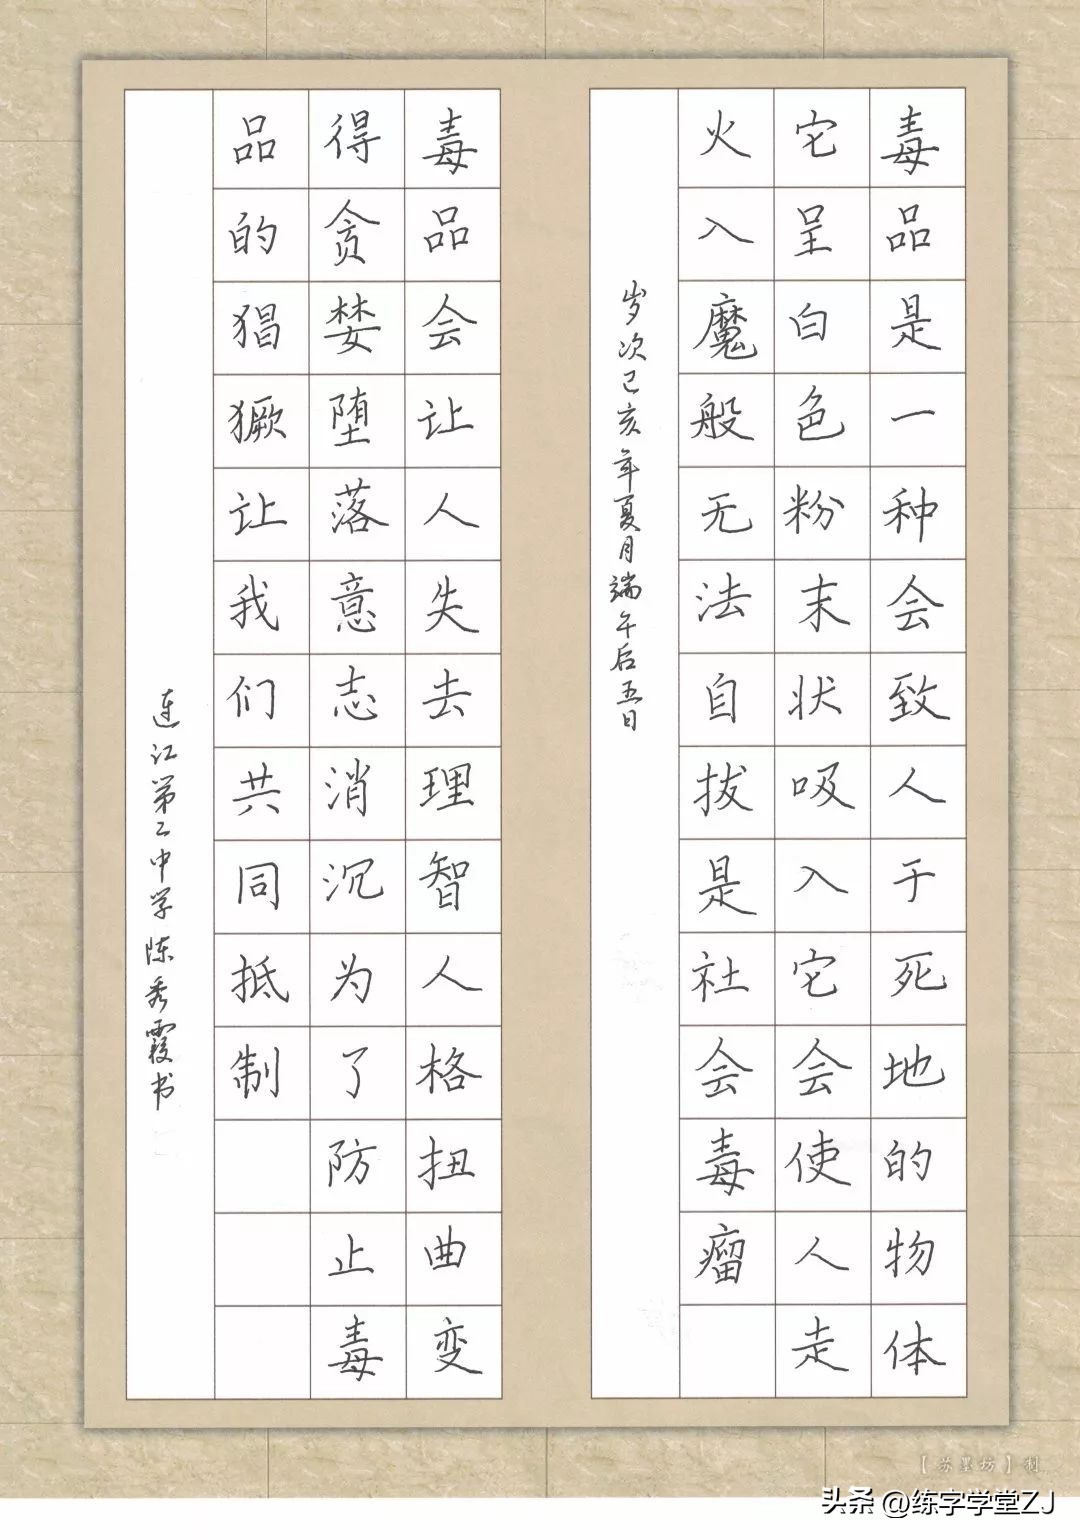 毒品是一种会致人于死地的物体
它呈白色粉末状吸入它会使人走
火入魔般无法自拔是社会毒瘤
岁次己亥年夏月端午后五日
毒品会让人失去理智人格扭曲变
得贪婪堕落意志消沉为了防止毒
品的猖獗让我们共同抵制
连江第二中学陈秀霞书
【苏墨坊】制
头条@练字学堂ZJ